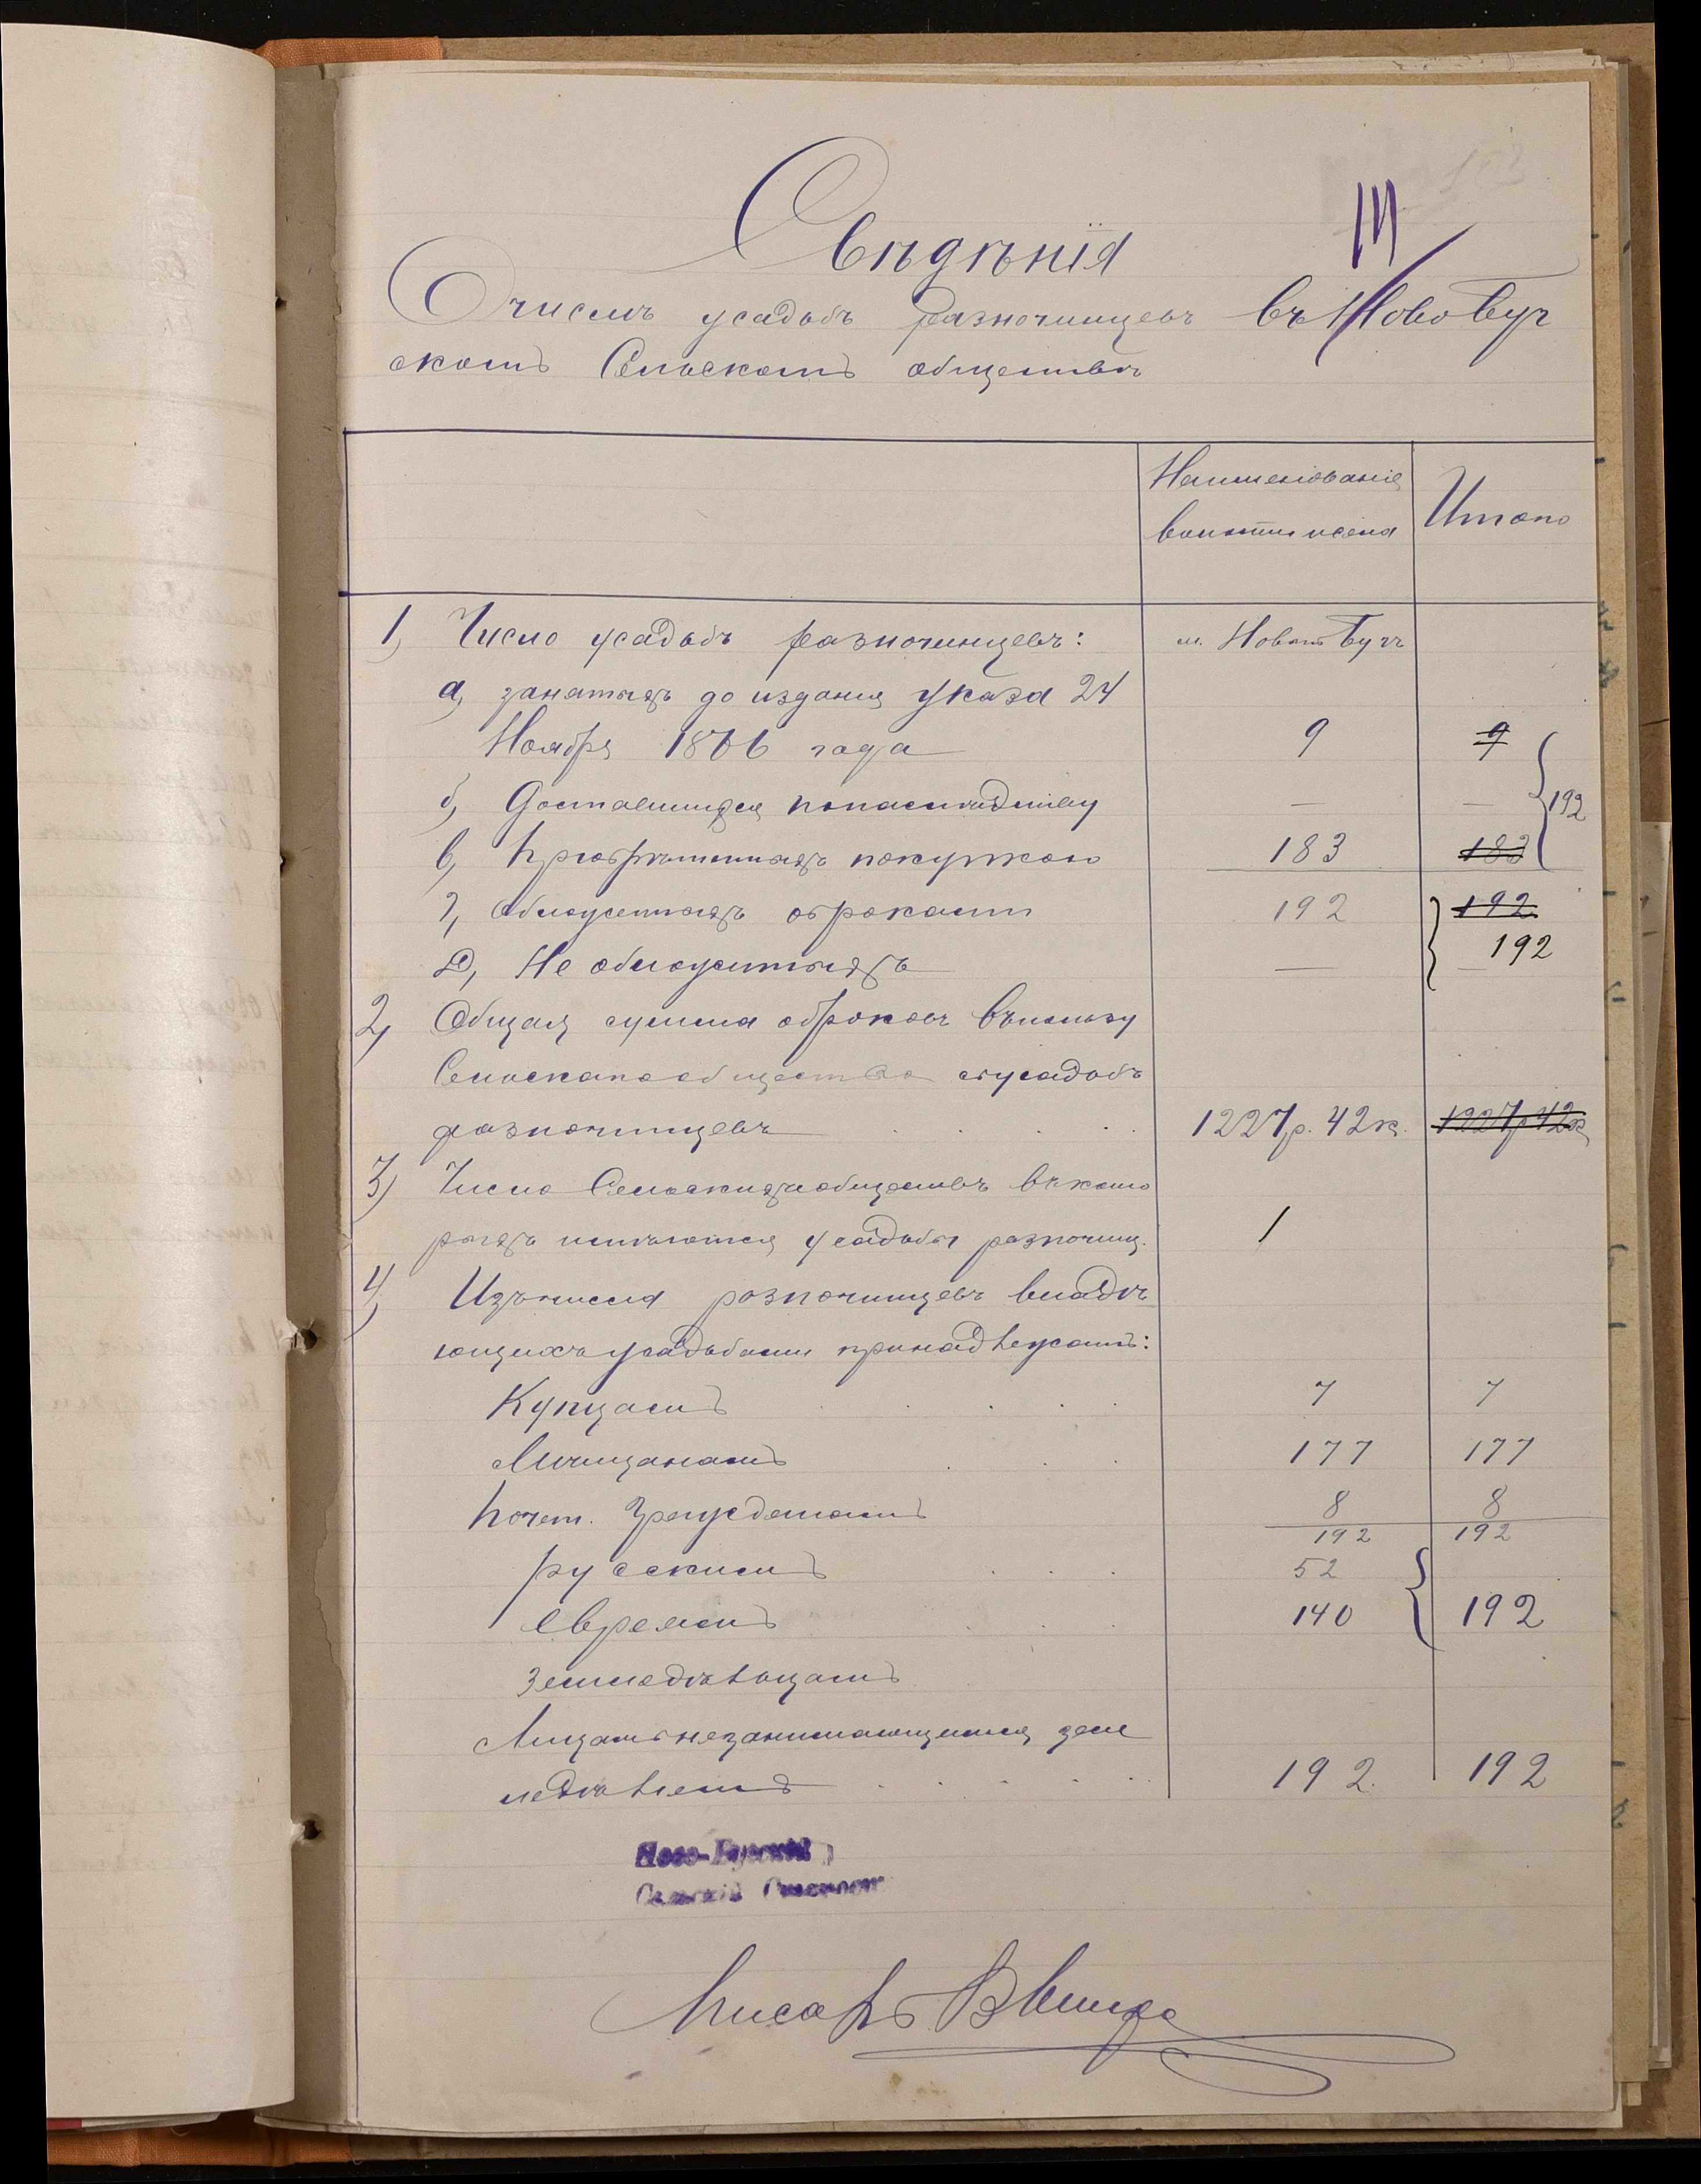 Свѣдѣнія
О числѣ усадьбъ разночинцевъ въ Ново Буг
скомъ Сельскомъ обществѣ
Наименованіе
волости и села
Итого
1) Число усадьбъ разночинцевъ: м. Новый Бугъ
а) занятыхъ до изданія указа 24
Ноября 1866 года 9 9
б) Доставшихся по наслѣдству — — 192
в) Пріобрѣтенныхъ покупкою 183 183
г) Обложенныхъ оброкомъ 192 192
д) Не обложенныхъ — — 192
2) Общая сумма оброковъ въ пользу
Сельскаго общества съ усадьбъ
разночинцевъ 1227 р. 42 к. 1227 р 42 к
3) Число Сельскихъ обществъ въ кото
рыхъ имѣются усадьбы разночинц. 1
4) Изъ числа разночинцевъ владѣ
ющихъ усадьбами принадлежатъ:
Купцамъ 7 7
Мѣщанамъ 177 177
Почет. Гражданамъ 8 8
192 192
русскимъ 52
Евреямъ 140 192
Земледѣльцамъ
Лицамъ незанимающимся земе
ледѣліемъ 192. 192
Ново-Бугскій
Сельскій Староста
Писарь